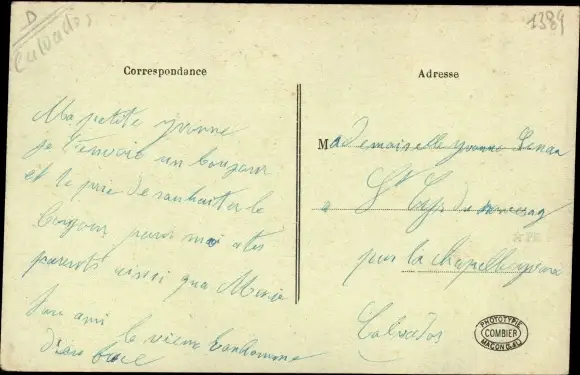 D
Calvados
1389
Correspondance
Adresse
Ma petite yvonne
je t'envoie un bonjour
et te prie de souhaiter le
bonjour pour moi a tes
parents ainsi qua Marie
Son ami
le vieux
Mademoiselle yvonne
a St
par la chapelle yvon
Calvados
PHOTOTYPIE
COMBIER
MACON